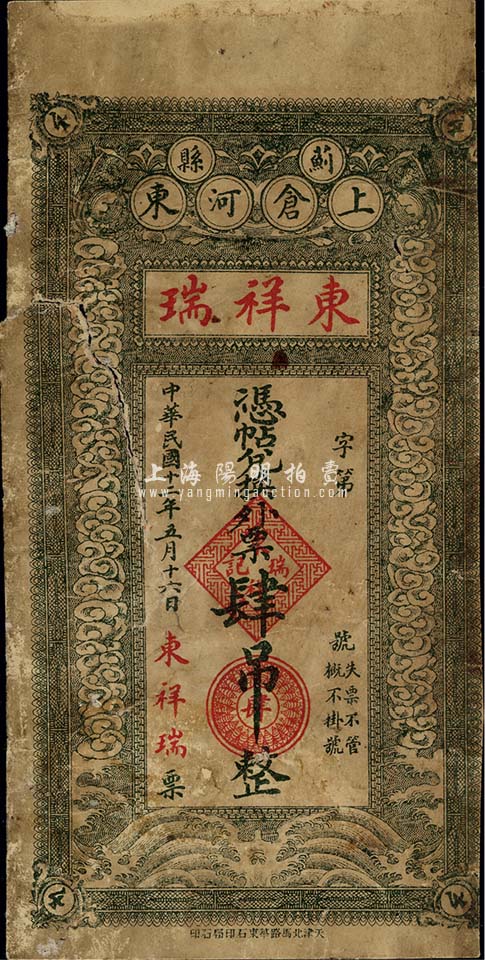 薊縣
上倉河東
東祥瑞
字第 號
失票不管
概不掛號
憑帖兌換外票肆吊整
瑞記
肆
中華民國十年五月十六日
東祥瑞票
上海陽明拍賣
www.yangmingauction.com
天津北馬路華東石印局石印